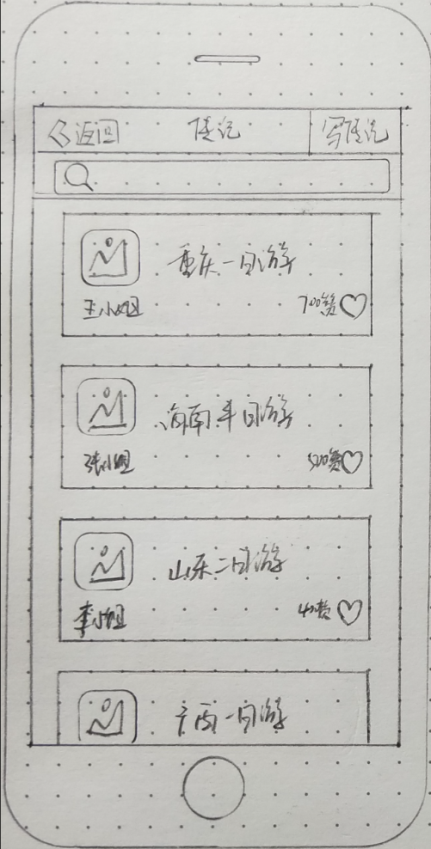 返回 游记 写游记
重庆一日游
王小姐 700赞
海南半日游
张小姐 500赞
山东二日游
李小姐 40赞
广西一日游